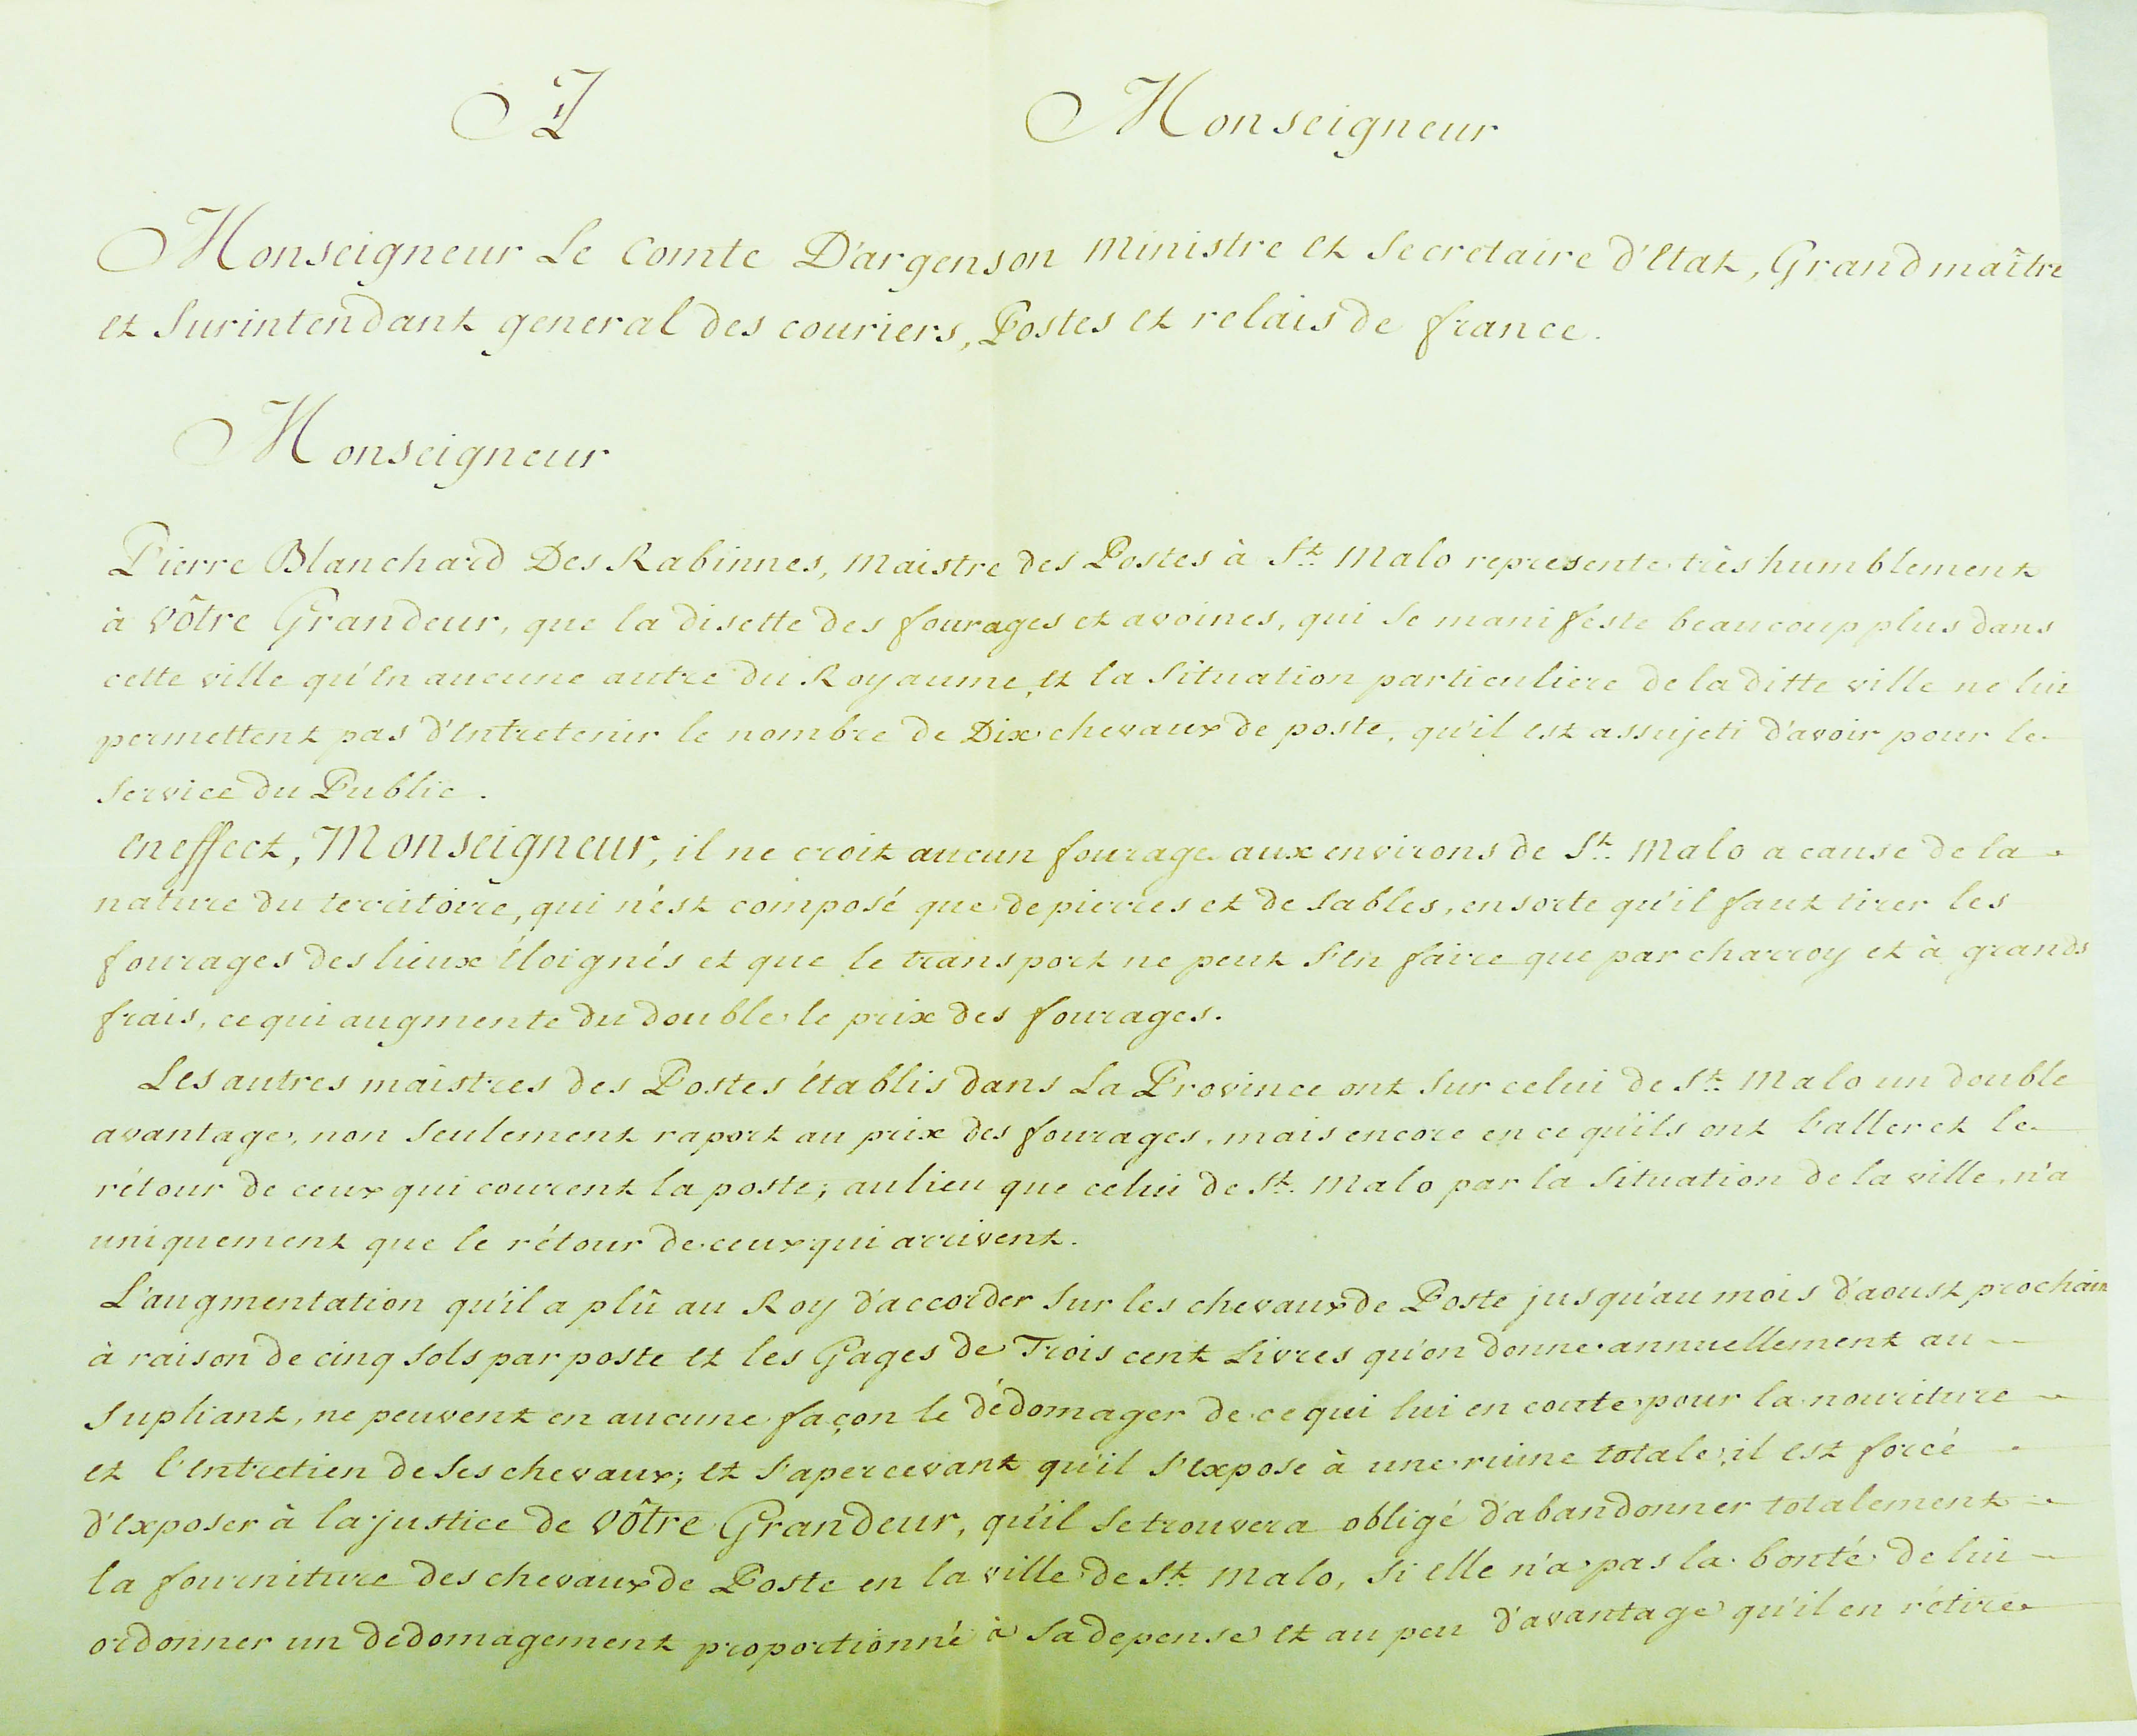 A Monseigneur
Monseigneur Le Comte D'argenson Ministre et Secretaire d'Etat, Grand maître
et Surintendant general des couriers, Postes et relais de france.
Monseigneur
Pierre Blanchard Des Rabinnes, Maistre des Postes à St. Malo represente très humblement
à Vôtre Grandeur, que la disette des fourages et avoines, qui se manifeste beaucoup plus dans
cette ville qu'en aucune autre du Royaume, et la Situation particuliere de la ditte ville ne lui
permettent pas d'Entretenir le nombre de Dix chevaux de poste, qu'il est assujeti d'avoir pour le
Service du Public.
En effect, Monseigneur, il ne croit aucun fourage aux environs de St. Malo a cause de la
nature du territoire, qui n'est composé que de pierres et de Sables, en sorte qu'il faut tirer les
fourages des lieux Eloignés et que le transport ne peut s'en faire que par charroy et à grands
frais, ce qui augmente du double le prix des fourages.
Les autres maistres des Postes établis dans La Province ont Sur celui de St. Malo un double
avantage, non Seulement raport au prix des fourages, mais encore en ce qu'ils ont l'aller et le
rétour de ceux qui courent la poste; au lieu que celui de St. Malo par la Situation de la ville, n'a
uniquement que le rétour de ceux qui arrivent.
L'augmentation qu'il a plû au Roy d'accorder Sur les chevaux de Poste jusqu'au mois d'aoust prochain
à raison de cinq Sols par poste et les Gages de Trois cent Livres qu'on donne annuellement au
Supliant, ne peuvent en aucune façon le dédomager de ce qui lui en coute pour la nouriture
et l'Entretien de Ses chevaux; et s'apercevant qu'il s'Expose à une ruine totale, il est forcé
d'Exposer à la justice de Vôtre Grandeur, qu'il Se trouvera obligé d'abandonner totalement
la fourniture des chevaux de Poste en la ville de St. Malo, Si elle n'a pas la bonté de lui
ordonner un dédomagement proportionné à Sa depense et au peu d'avantage qu'il en rétire